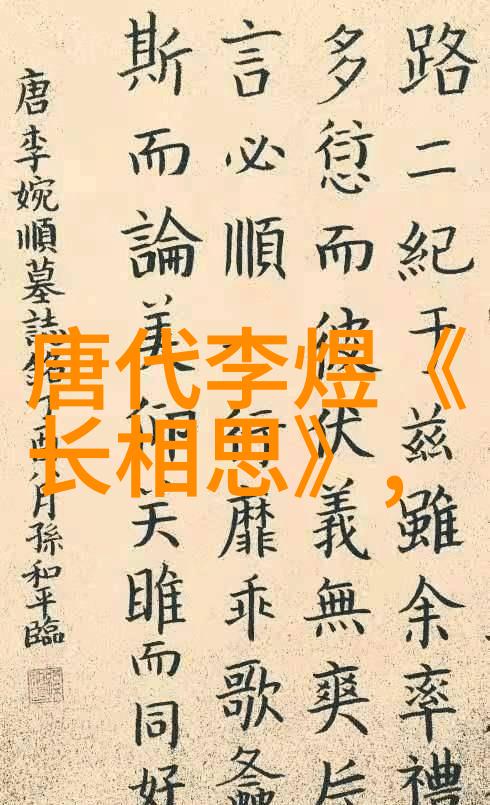 唐代李煜《
长相思》，
路二紀于兹雖余率禮
多愆而彼伏義無爽
言必順行靡乖歌
斯而論美雎而同好
唐李婉順墓誌銘月孫和平臨